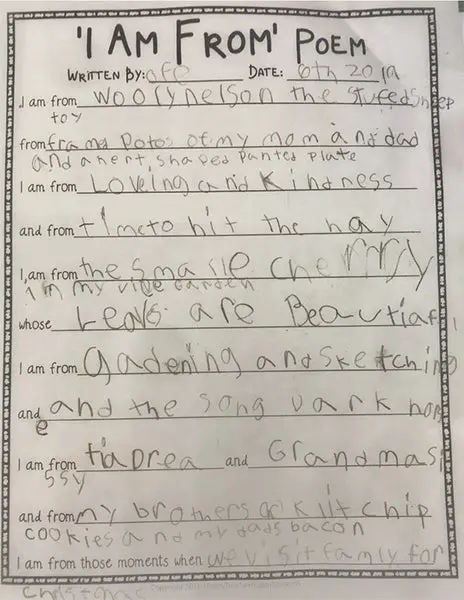 'I AM FROM' POEM
WRITTEN BY: DATE: 6th
I am from Woolynelson the stuffed sheep
toy
from framd potos of my mom and dad
and a hert shaped panted plate
I am from Loveing and Kindness
and from timeto hit the hay
I am from the smalle cherrry
in my garden
whose Leavs are Beautiaful
I am from gadening and sketching
and and the song dark hors
e
I am from and Grandmas
ssy
and from my brothers chip
cookies and my dads bacon
I am from those moments when we visit family for
Christmas